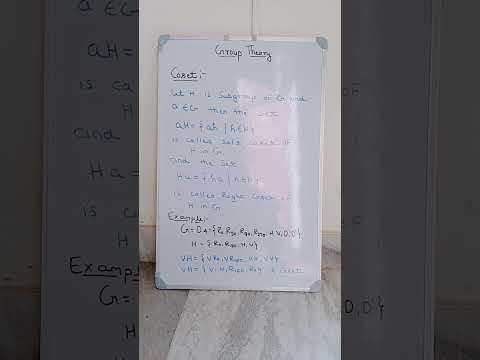 Group Theory
Coset :-
Let H is Subgroup of G and
a ∈ G then the set
aH = { ah | h ∈ H }
is called left coset of
H in G
and the set
Ha = { ha | h ∈ H }
is called Right Coset of
H in G
Example :-
G = D4 = { R0, R90, R180, R270, H, V, D, D' }
H = { R0, R180, H, V }
VH = { VR0, VR180, VH, VV }
VH = { V, H, R180, R0 } is Coset